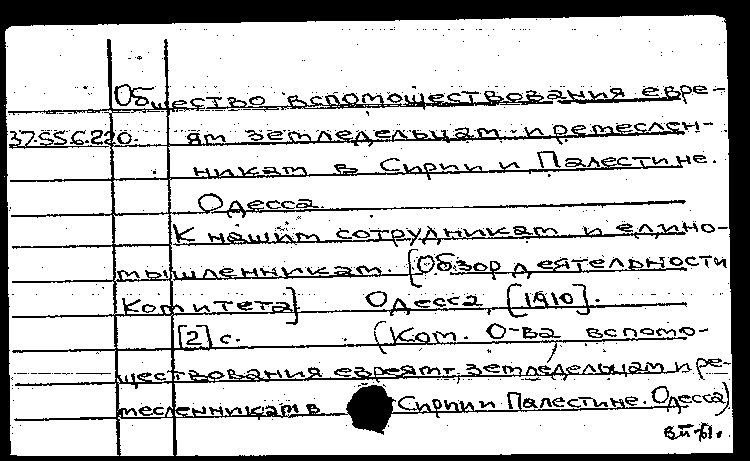 Общество вспомоществования евре-
37.55.6.220. ям земледельцам и ремеслен-
никам в Сирии и Палестине.
Одесса
К нашим сотрудникам и едино-
мышленникам. [Обзор деятельности
Комитета] Одесса, [1910].
[2] с. (Ком. О-ва вспомо-
ществования евреям, земледельцам и ре-
месленникам в Сирии и Палестине. Одесса)